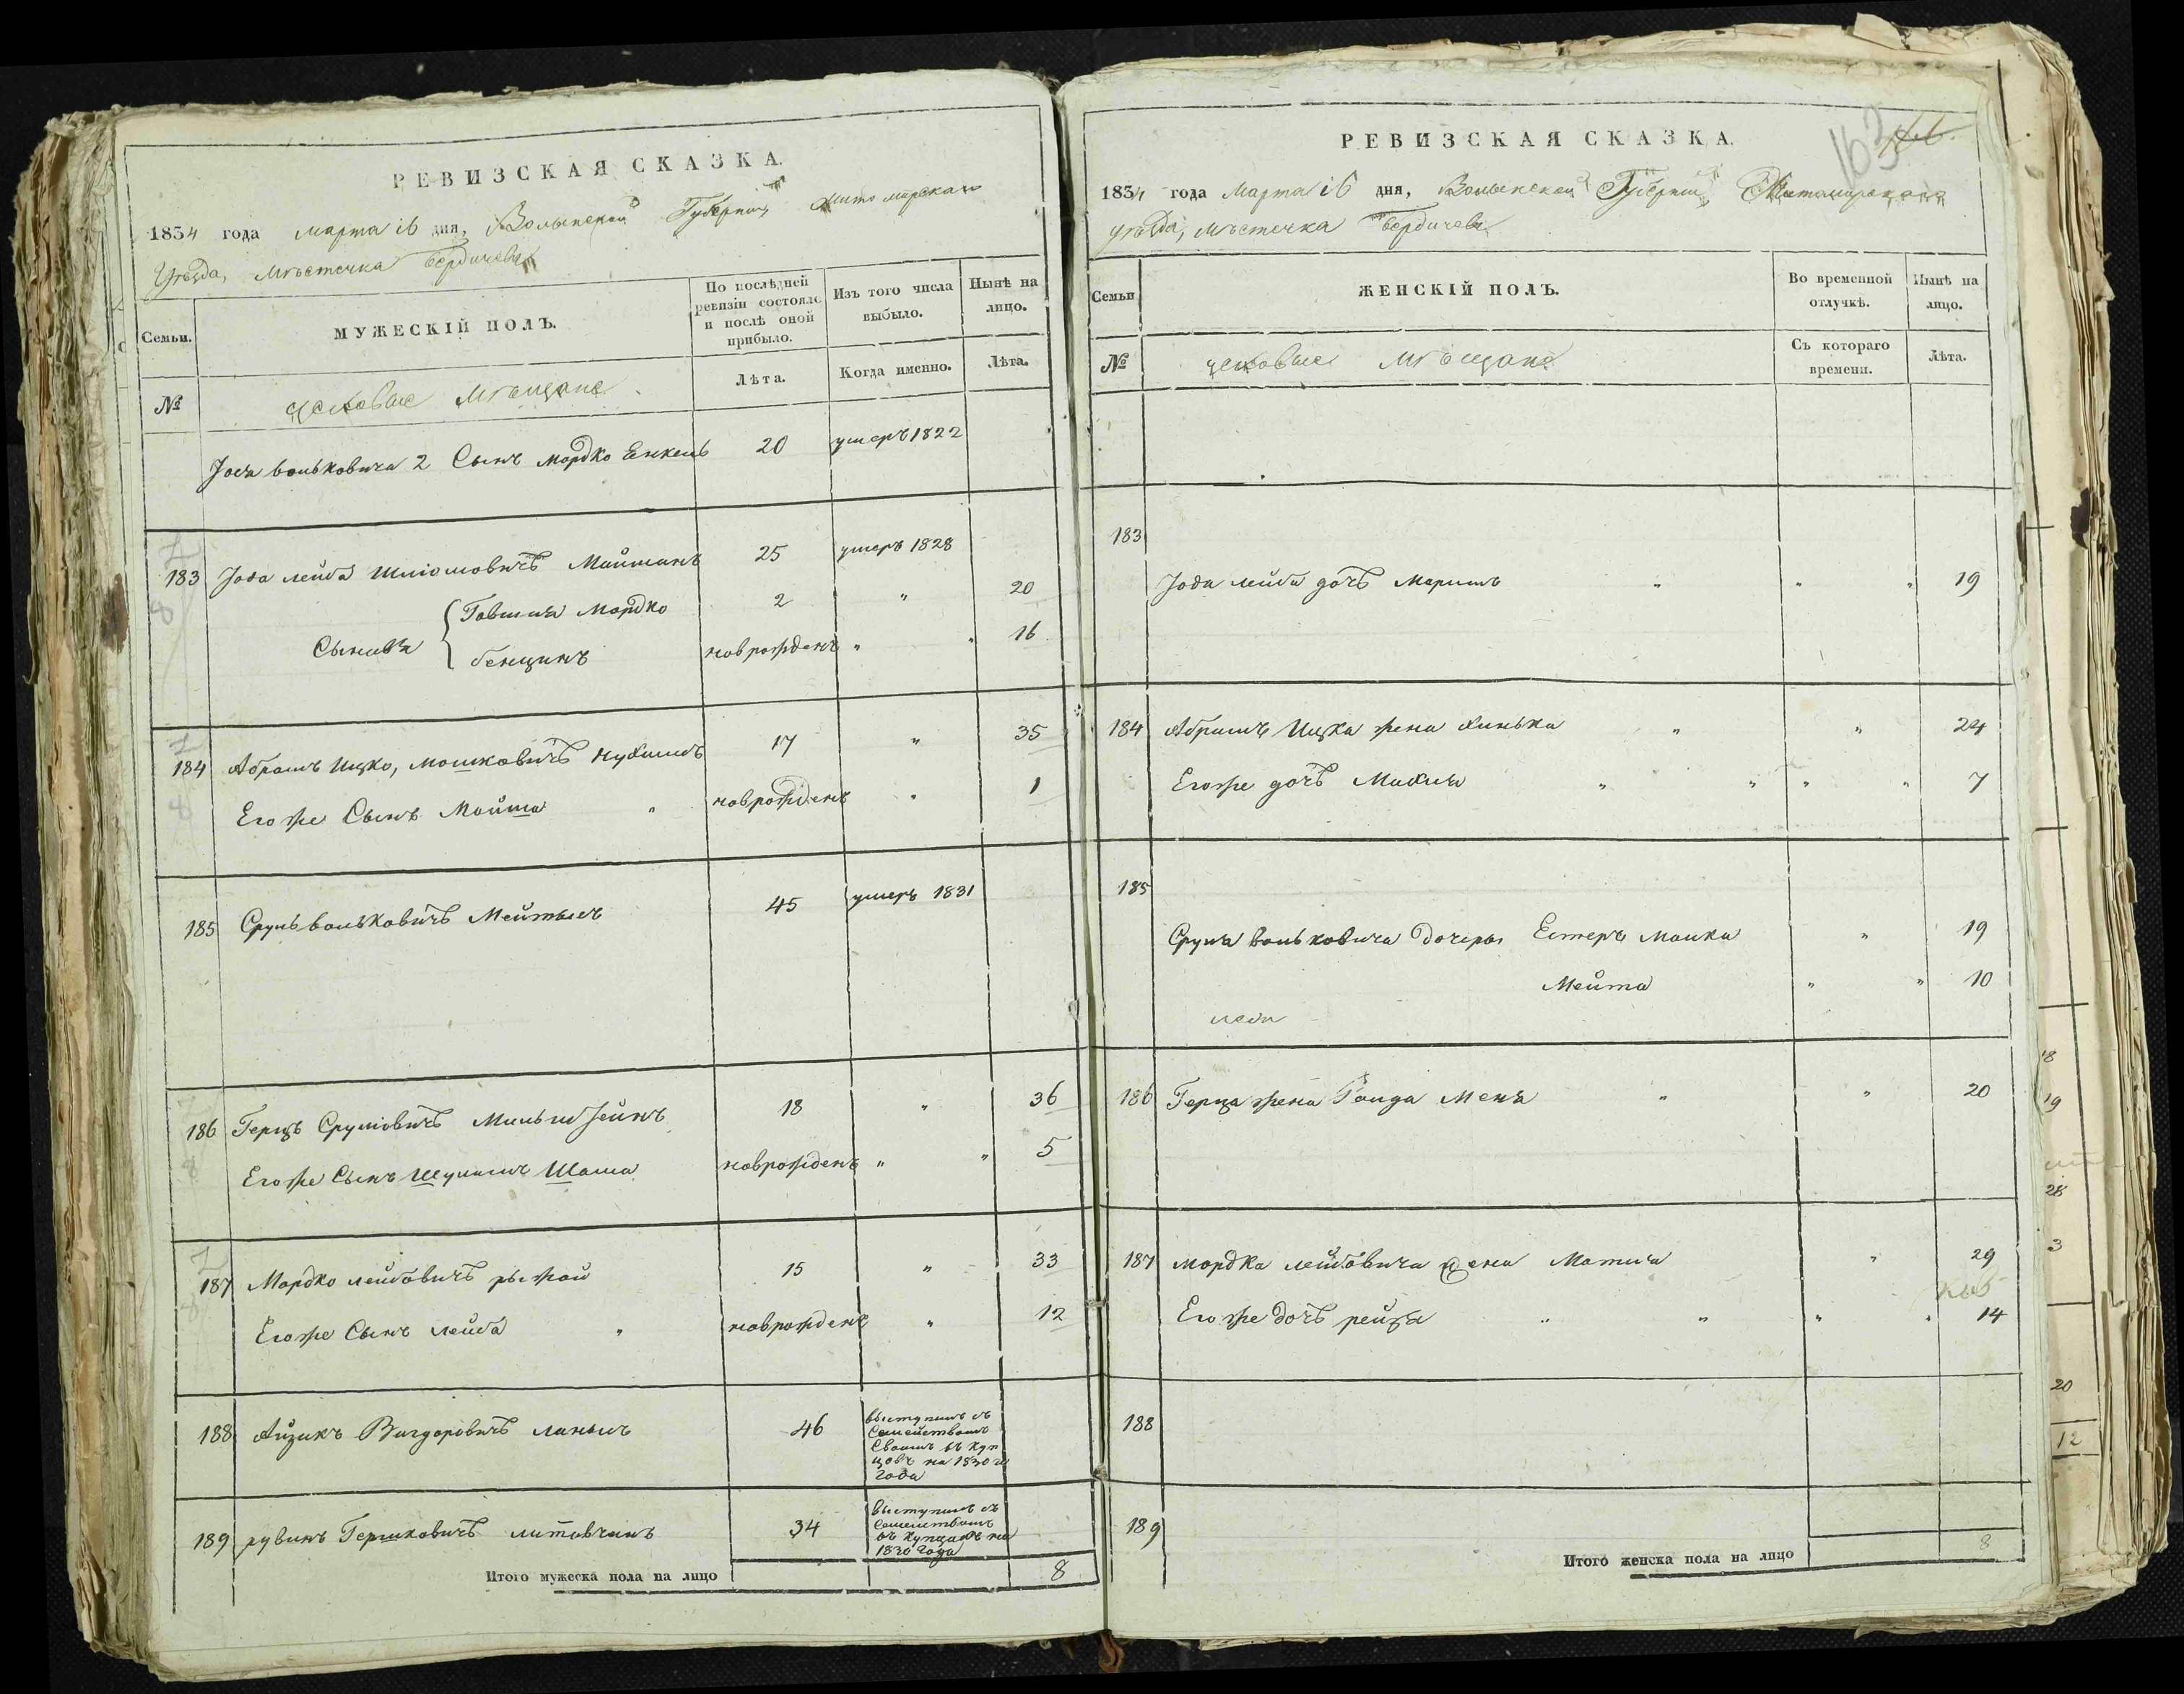 РЕВИЗСКАЯ СКАЗКА.
1834 года марта 16 дня, Волынской Губерніи Житомирскаго
Уѣзда, мѣстечка Бердичева
Семьи. МУЖЕСКІЙ ПОЛЪ. По послѣдней ревизіи состояло и послѣ оной прибыло. Изъ того числа выбыло. Нынѣ на лицо.
№ цеховые мѣщане Лѣта. Когда именно. Лѣта.
Јося Вольковича 2 Сынъ Мордко Енкель 20 умеръ 1822
183 Јода лейба Шліомовичъ Майманъ 25 умеръ 1828
Сыновья { Говшия Мордко 2 " 20
бенцинъ новрожденъ " " 16
184 Абрамъ Ицко, Мошковичъ 17 " 35
Его же Сынъ Мойша " новрожденъ " 1
185 Сруль вольковичъ Мейтысъ 45 умеръ 1831
186 Герцъ Сруліовичъ 18 " 36
Его же Сынъ Шулимъ Шома новрожденъ " " 5
187 Мордко лейбовичъ рыжой 15 " 33
Его же Сынъ лейба " новрожденъ " 12
188 Айзикъ Вигдоровичъ 46 выступилъ съ
Семействомъ
Своимъ въ Куп
цовъ на 1830й
года
189 рувинъ Гершковичъ литовчинъ 34 выступилъ съ
Семействомъ
въ Купцовъ на
1830 года
Итого мужеска пола на лицо 8
163
РЕВИЗСКАЯ СКАЗКА.
1834 года Марта 16 дня, Волынской Губерніи, Житомирскаго
уѣзда, мѣстечка Бердичева
Семьи ЖЕНСКІЙ ПОЛЪ. Во временной отлучкѣ. Нынѣ на лицо.
№ цеховые мѣщане Съ котораго времени. Лѣта.
183
Јода лейби дочъ Маримъ " " " 19
184 Абрамъ Ицка жена хинька " " 24
Его же дочъ Махля " " " " 7
185
Сруля вольковича дочеры Естеръ Малки " 19
Мейта " " 10
186 Герца жена Голда Меня " " 20
187 мордка лейбовича жена Матля " 29
Его же дочъ рейза " " " " 14
188
189
Итого женска пола на лицо 8